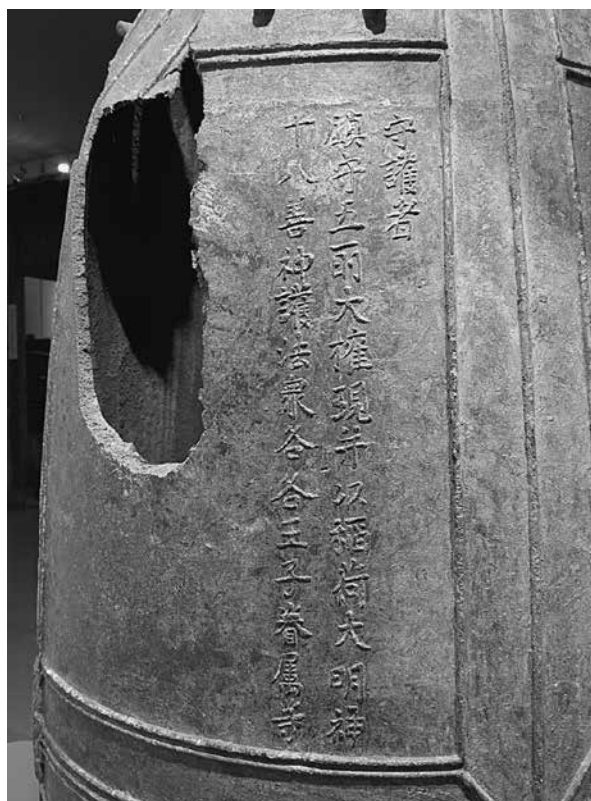 守護者
鎮守五所大権現并以稲荷大明神
十八善神護法衆各各王子眷属等